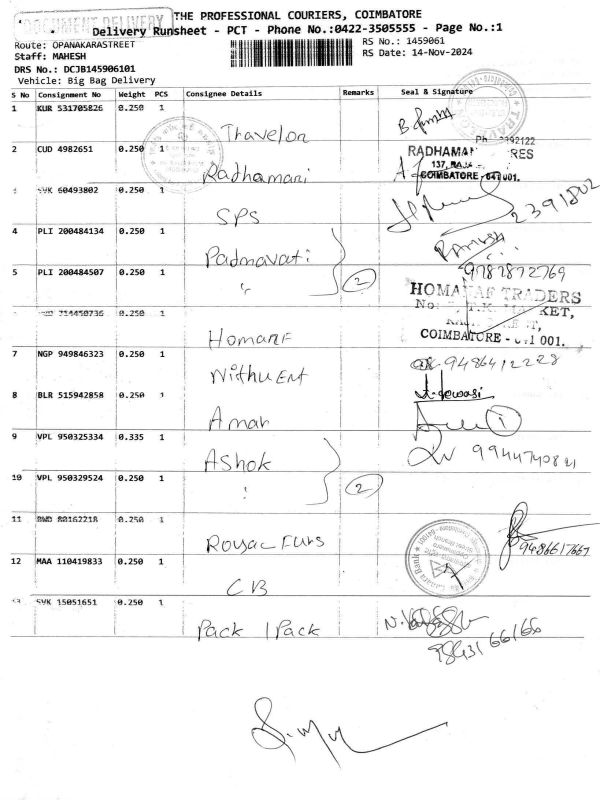 DOCUMENT DELIVERY
THE PROFESSIONAL COURIERS, COIMBATORE
Delivery Runsheet - PCT - Phone No.:0422-3505555 - Page No.:1
Route: OPANAKARASTREET
Staff: MAHESH
DRS No.: DCJB145906101
Vehicle: Big Bag Delivery
RS No.: 1459061
RS Date: 14-Nov-2024
S No Consignment No Weight PCS Consignee Details Remarks Seal & Signature
1 KUR 531705826 0.250 1 Thavelon
2 CUD 4982651 0.250 1 Radhamani
RADHAMA RES
COIMBATORE - 641 001.
SVK 60493802 0.250 1 SPS
2391802
4 PLI 200484134 0.250 1 Padmavati
5 PLI 200484507 0.250 1 " 2
9787872769
714450736 0.250 1 Homarf
HOMARAF TRADERS
COIMBATORE - 641 001.
7 NGP 949846323 0.250 1 Nithu Ent
9486412228
8 BLR 515942858 0.250 1 Amar
1
9 VPL 950325334 0.335 1 Ashok
9944740821
10 VPL 950329524 0.250 1 " 2
11 BWD 80162218 0.250 1 Furs
9486617667
12 MAA 110419833 0.250 1 CB
Canara Bank
13 SVK 15051651 0.250 1 Pack 1 Pack
9843166166